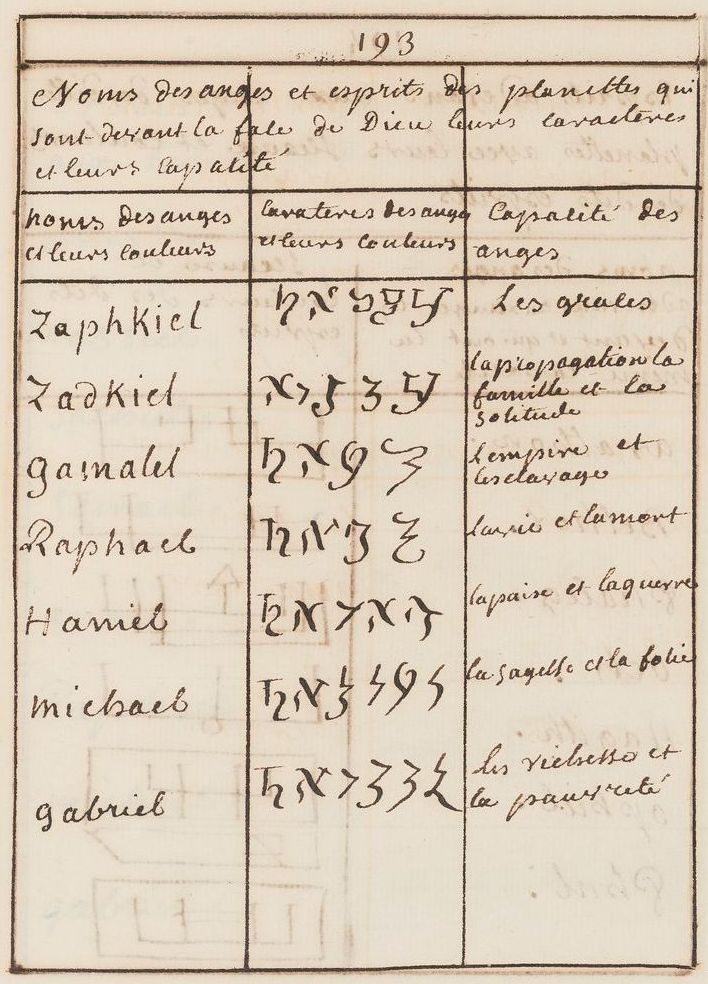 193
Noms des anges et esprits des planettes qui
sont devant la face de Dieu leurs caracteres
et leurs capacité
noms des anges
et leurs couleurs
carateres des anges
et leurs couleurs
Capacité des
anges
Zaphkiel
Les graces
Zadkiel
la propagation la
famille et la
solitude
gamalel
Lempire et
lesclavage
Raphael
la vie et la mort
Haniel
la paise et la guerre
michael
la sagesse et la folie
gabriel
Les richesse et
la pauvreté